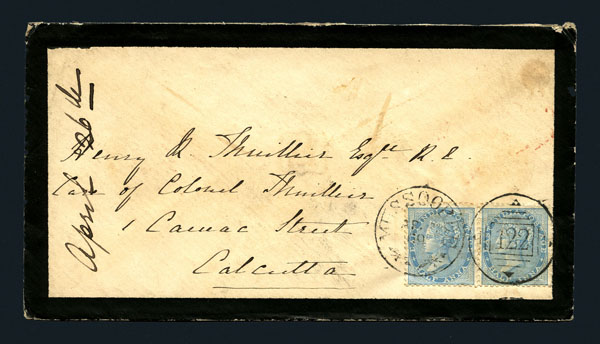 April 26th
Henry R. Thuillier Esqre R.E.
Care of Colonel Thuillier
1 Camac Street
Calcutta
MUSSOO
122